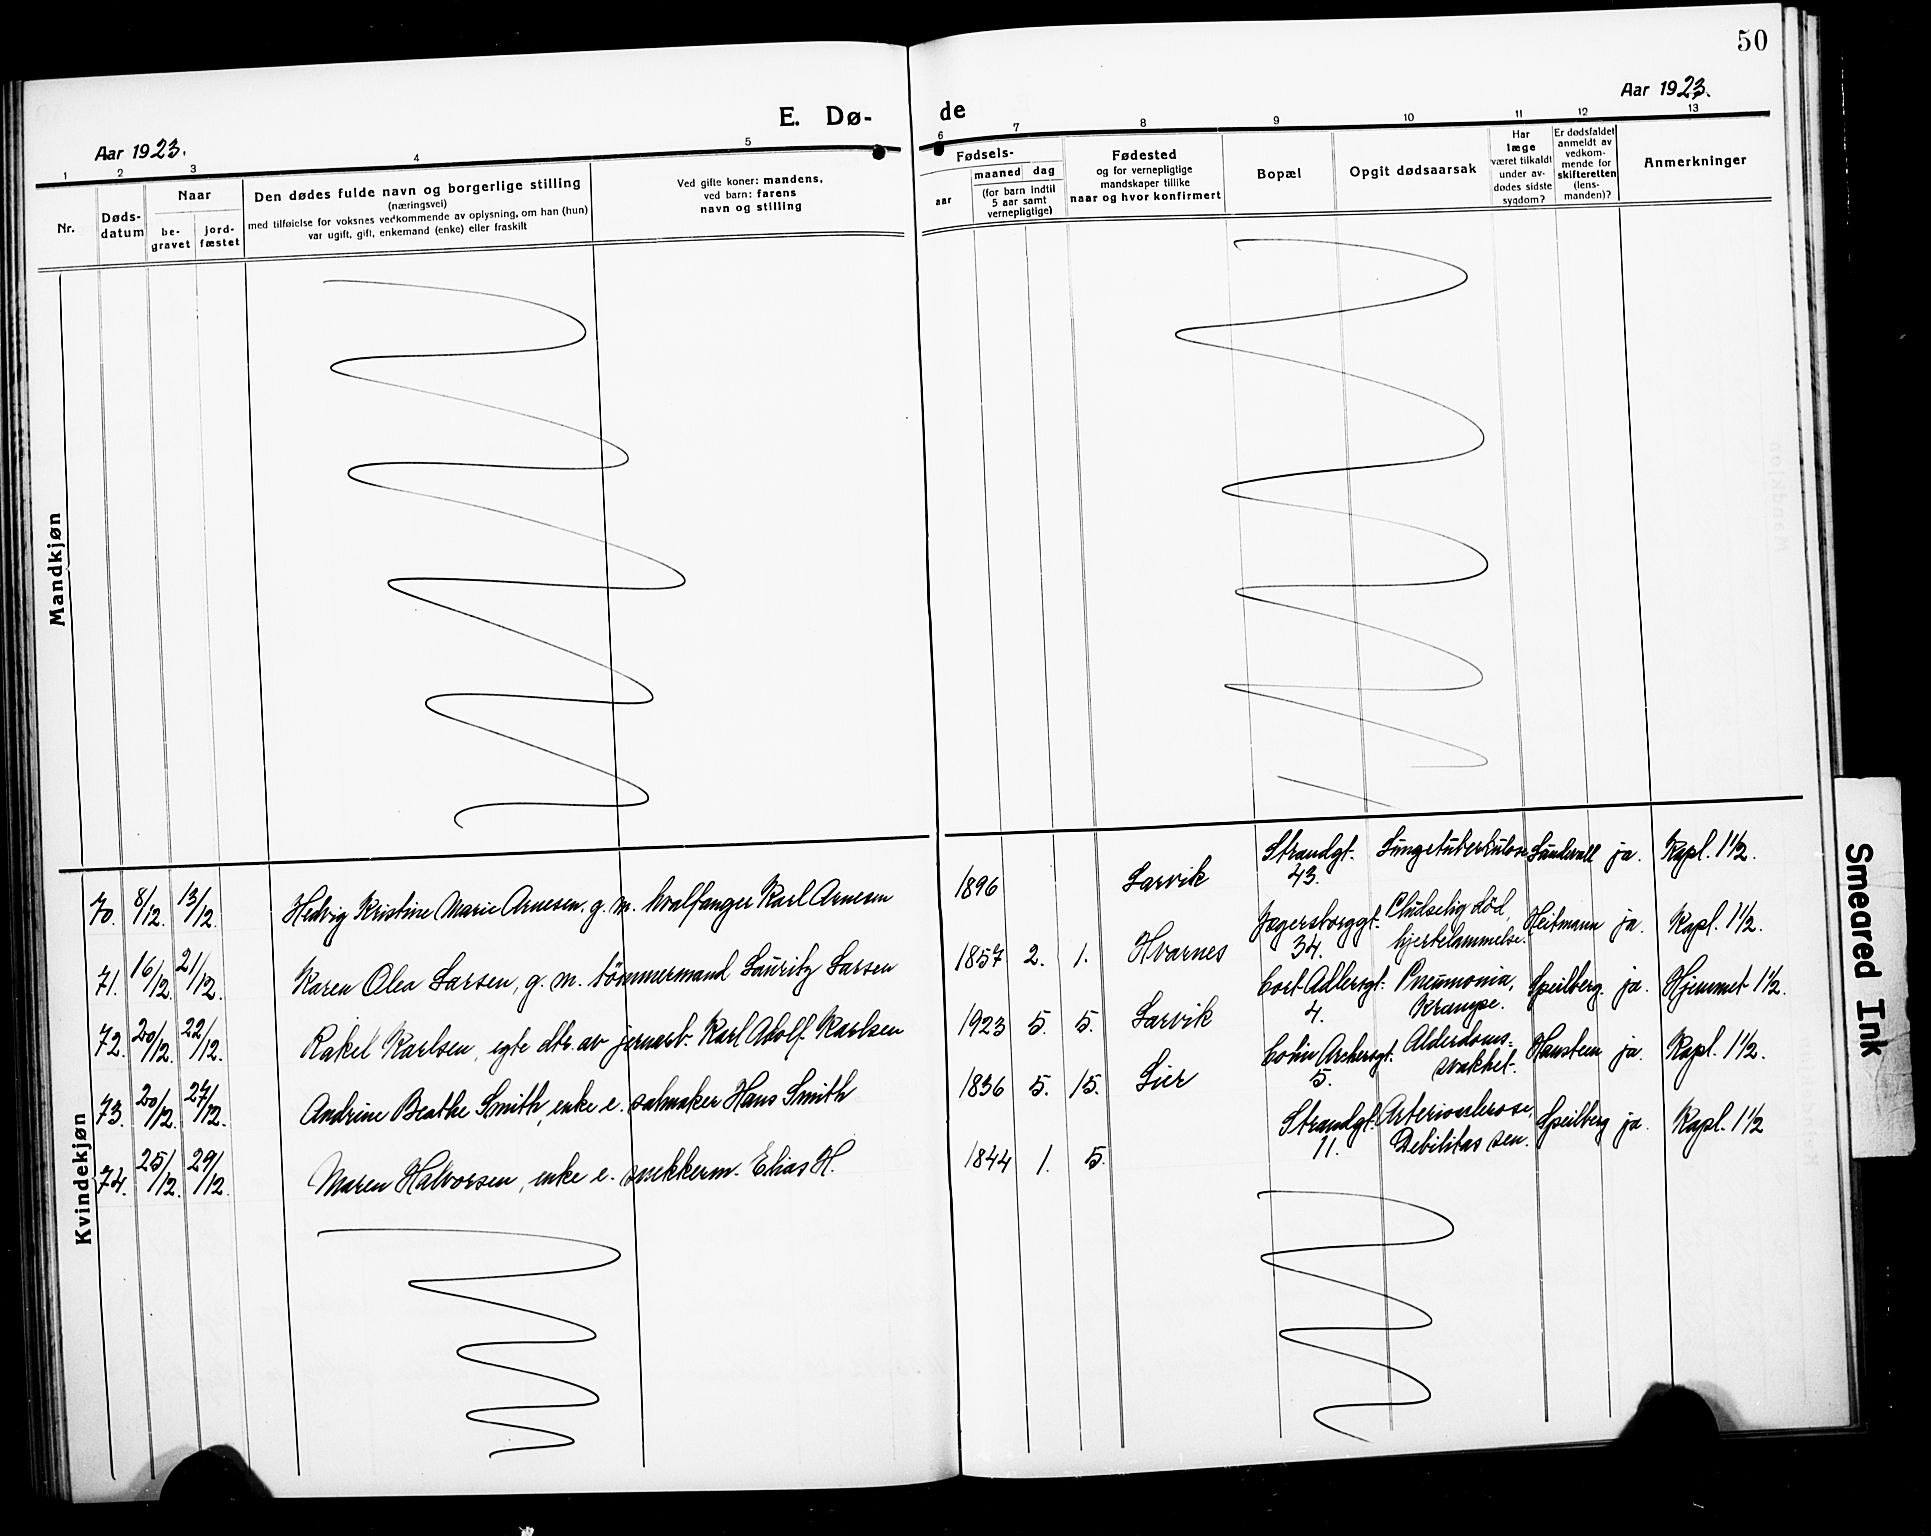 50
Aar 1923.
E. Dø-
de
Aar 1923.
1 2 3 4 5
6 7 8 9 10 11 12 13
Nr.
Døds-
datum
Naar
be-
gravet
jord-
fæstet
Den dødes fulde navn og borgerlige stilling
(næringsvei)
med tilføielse for voksnes vedkommende av oplysning, om han (hun)
var ugift, gift, enkemand (enke) eller fraskilt
Ved gifte koner: mandens,
ved barn: farens
navn og stilling
Fødsels-
aar
maaned dag
(for barn indtil
5 aar samt
vernepligtige)
Fødested
og for vernepligtige
mandskaper tillike
naar og hvor konfirmert
Bopæl
Opgit dødsaarsak
Har
læge
været tilkaldt
under av-
dødes sidste
sygdom?
Er dødsfaldet
anmeldt av
vedkom-
mende for
skifteretten
(lens-
manden)?
Anmerkninger
Mandkjøn
Kvindekjøn
70. 8/12. 13/12. Hedvig Kristine Marie Arnesen. g. m. hvalfanger Karl Arnesen 1896 Larvik Strandgt. 43. Lungetuberkulose Sundwall ja. Kapl. 1 1/2.
71. 16/12. 21/12. Karen Olea Larsen, g. m. tømmermand Lauritz Larsen 1857 2. 1. Hvarnes Jegersborggt. 34. Pludselig død, hjertelammelse. Heitmann ja. Kapl. 1 1/2.
72. 20/12. 22/12. Rakel Karlsen, egte dtr. av jernarb. Karl Adolf Karlsen 1923 5. 5. Larvik Cort Adlersgt. 4. Pneumonia, Krampe. Speilberg. ja. Hjemmet 1 1/2.
73. 20/12. 27/12. Andrine Beathe Smith, enke e. salmaker Hans Smith 1836 5. 15. Lier Colin Archersgt. 5. Alderdoms- svakhet. Hanstein ja. Kapl. 1 1/2.
74. 25/12. 29/12. Maren Halvorsen, enke e. snekkerm. Elias H. 1844 1. 5. Strandgt. 11. Arteriosclerose, Debilitas sen. Speilberg ja. Kapl. 1 1/2
Smeared Ink